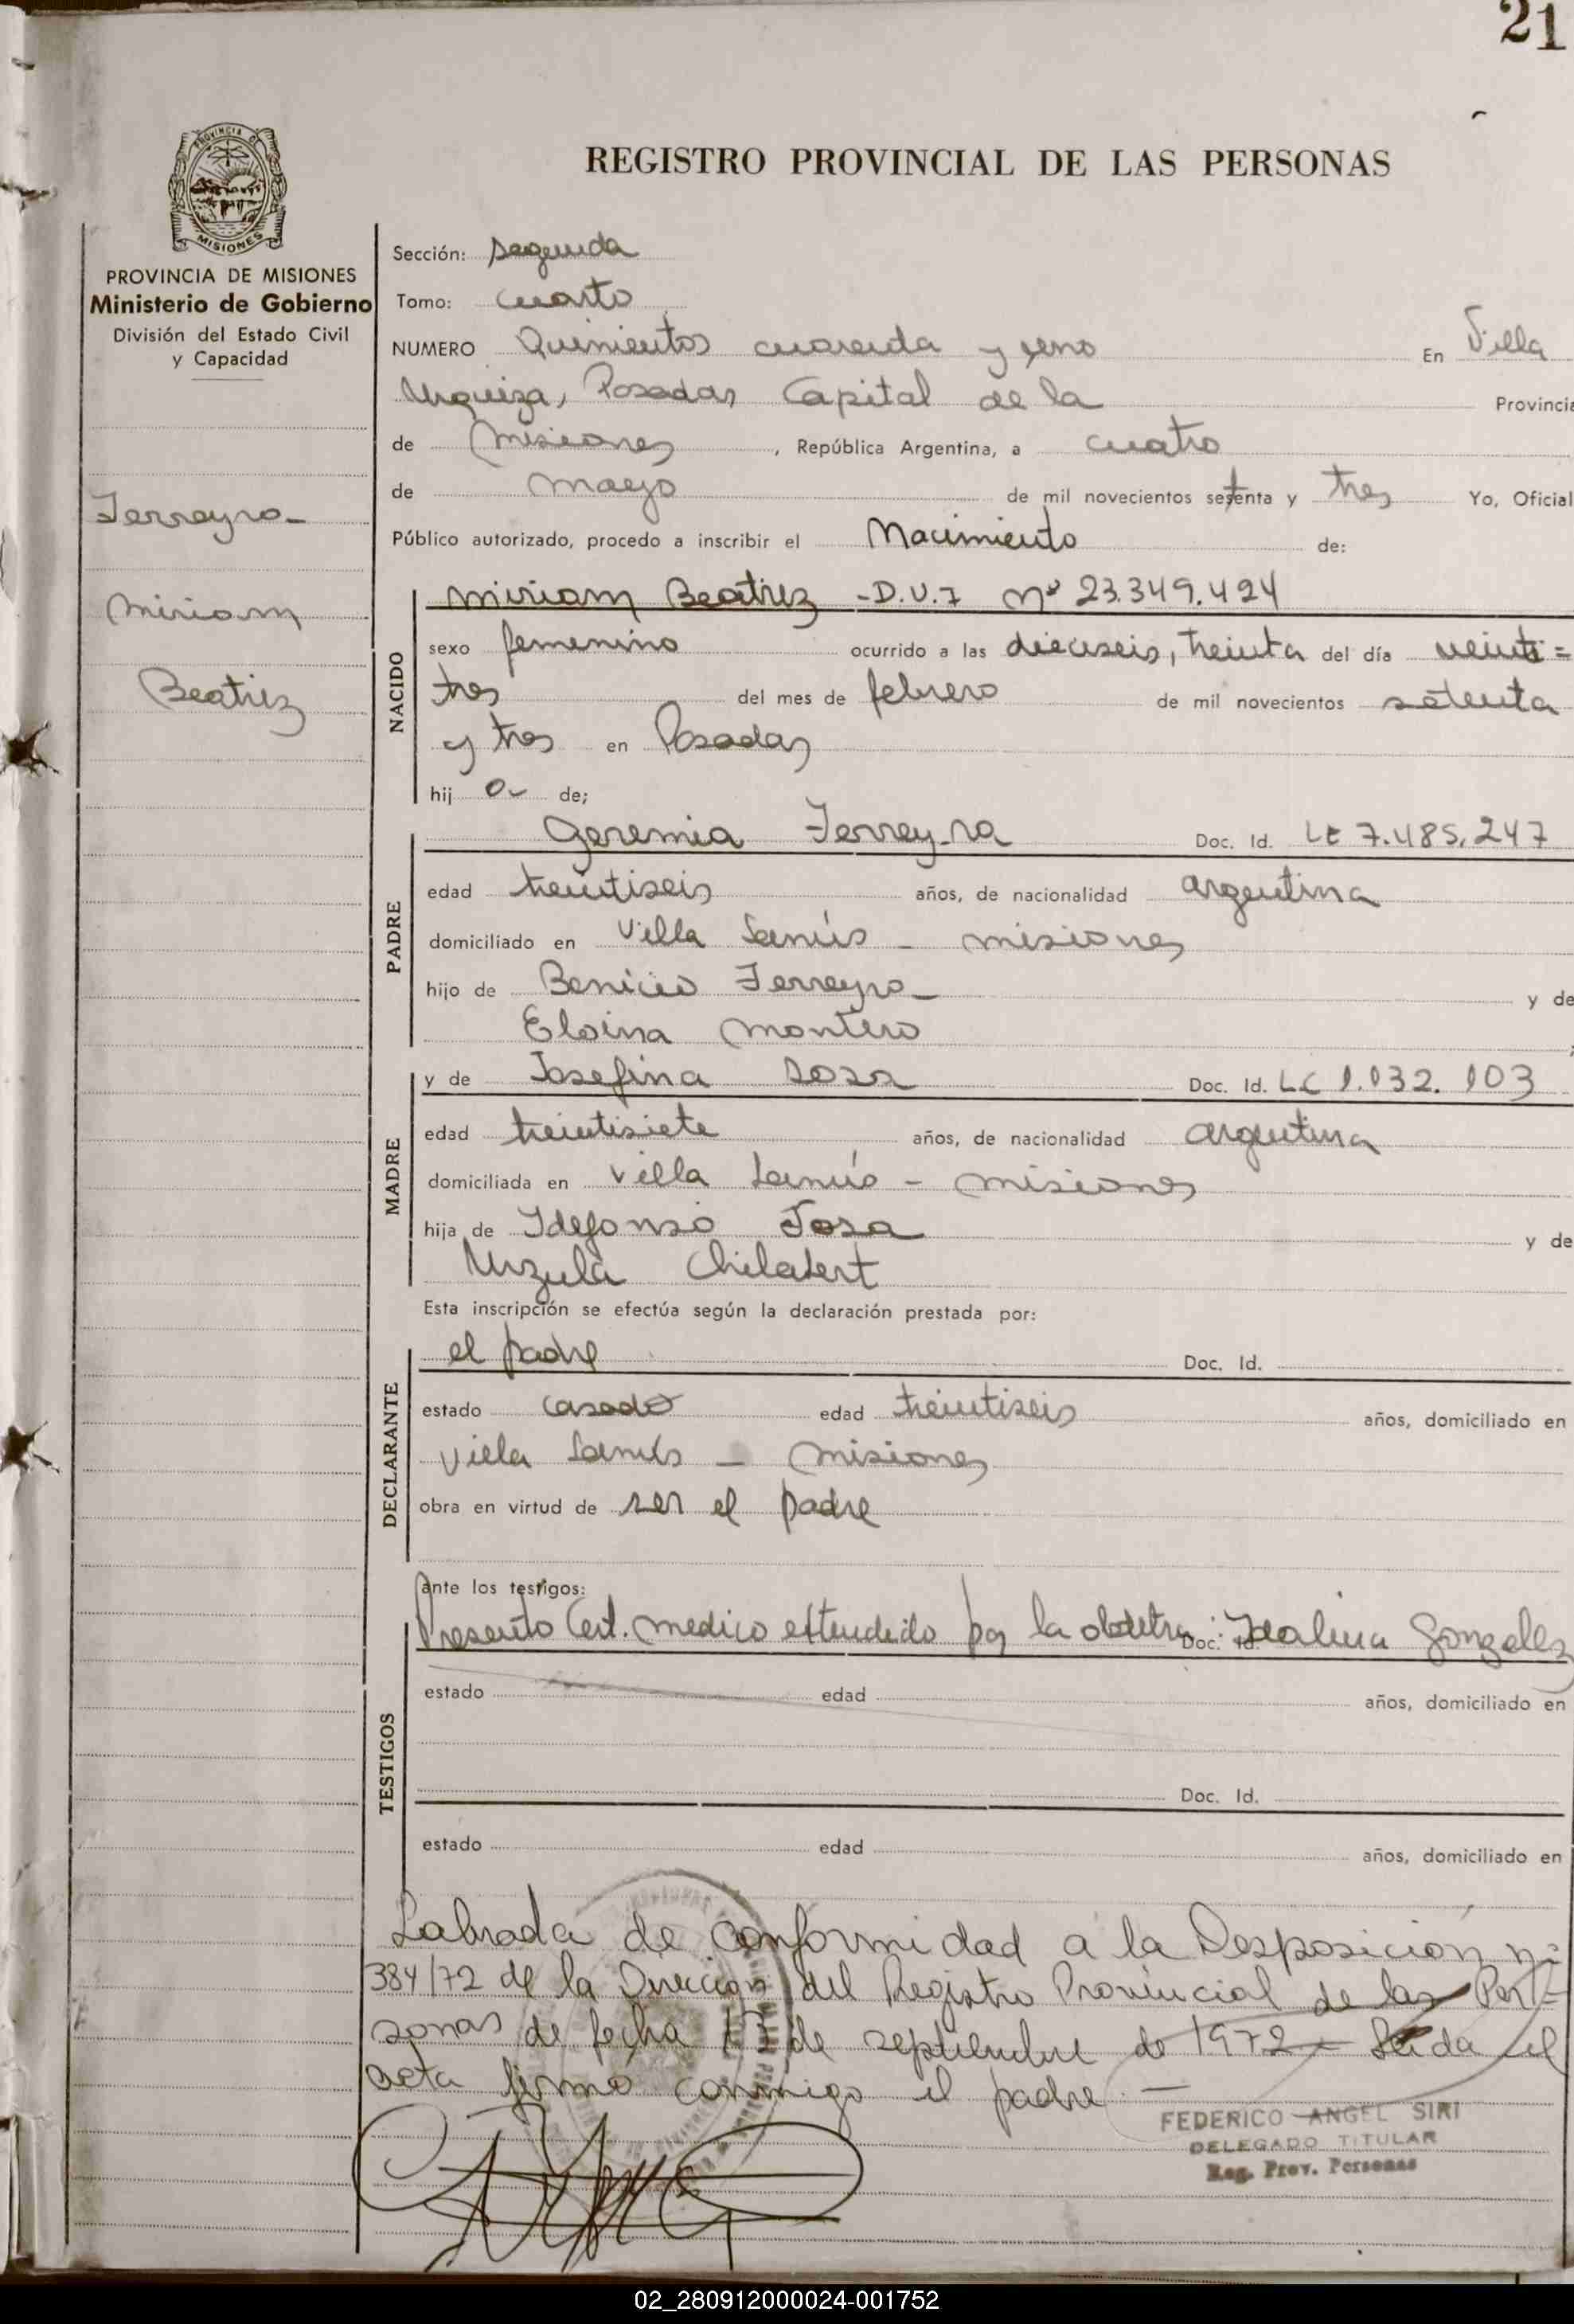 21
REGISTRO PROVINCIAL DE LAS PERSONAS
PROVINCIA DE MISIONES
Ministerio de Gobierno
División del Estado Civil
y Capacidad
Ferreyra
Miriam
Beatriz
Sección: segunda
Tomo: cuarto
NUMERO Quinientos cuarenta y uno En Villa
Urquiza, Posadas Capital de la Provincia
de Misiones, República Argentina, a cuatro
de mayo de mil novecientos setenta y tres Yo, Oficial
Público autorizado, procedo a inscribir el Nacimiento de:
NACIDO
Miriam Beatriz - D.U.I Nº 23.349.424
sexo femenino ocurrido a las dieciseis, treinta del día veinti=
tres del mes de febrero de mil novecientos setenta
y tres en Posadas
hij a de;
PADRE
Geremia Ferreyra Doc. Id. LE 7.485.247
edad treintiseis años, de nacionalidad argentina
domiciliado en Villa Lanús - Misiones
hijo de Benicio Ferreyra y de
Eloina Montero
MADRE
y de Josefina Sosa Doc. Id. LC 1.132.103
edad treintisiete años, de nacionalidad argentina
domiciliada en Villa Lanús - Misiones
hija de Idefonso Sosa y de
Urzula Chilabert
Esta inscripción se efectúa según la declaración prestada por:
DECLARANTE
el padre Doc. Id.
estado casado edad treintiseis años, domiciliado en
Villa Lanús - Misiones
obra en virtud de ser el padre
ante los testigos:
TESTIGOS
Presento Cert. medico extendido por la obstetra: Idalina Gonzalez Doc. Id.
estado edad años, domiciliado en
Doc. Id.
estado edad años, domiciliado en
Labrada de conformidad a la Desposición nº
384/72 de la Direccion del Registro Provincial de las Per=
sonas de fecha 17 de septiembre de 1972 - Leida el
acta firmó conmigo el padre -
FEDERICO ANGEL SIRI
DELEGADO TITULAR
Reg. Prov. Personas
02_280912000024-001752